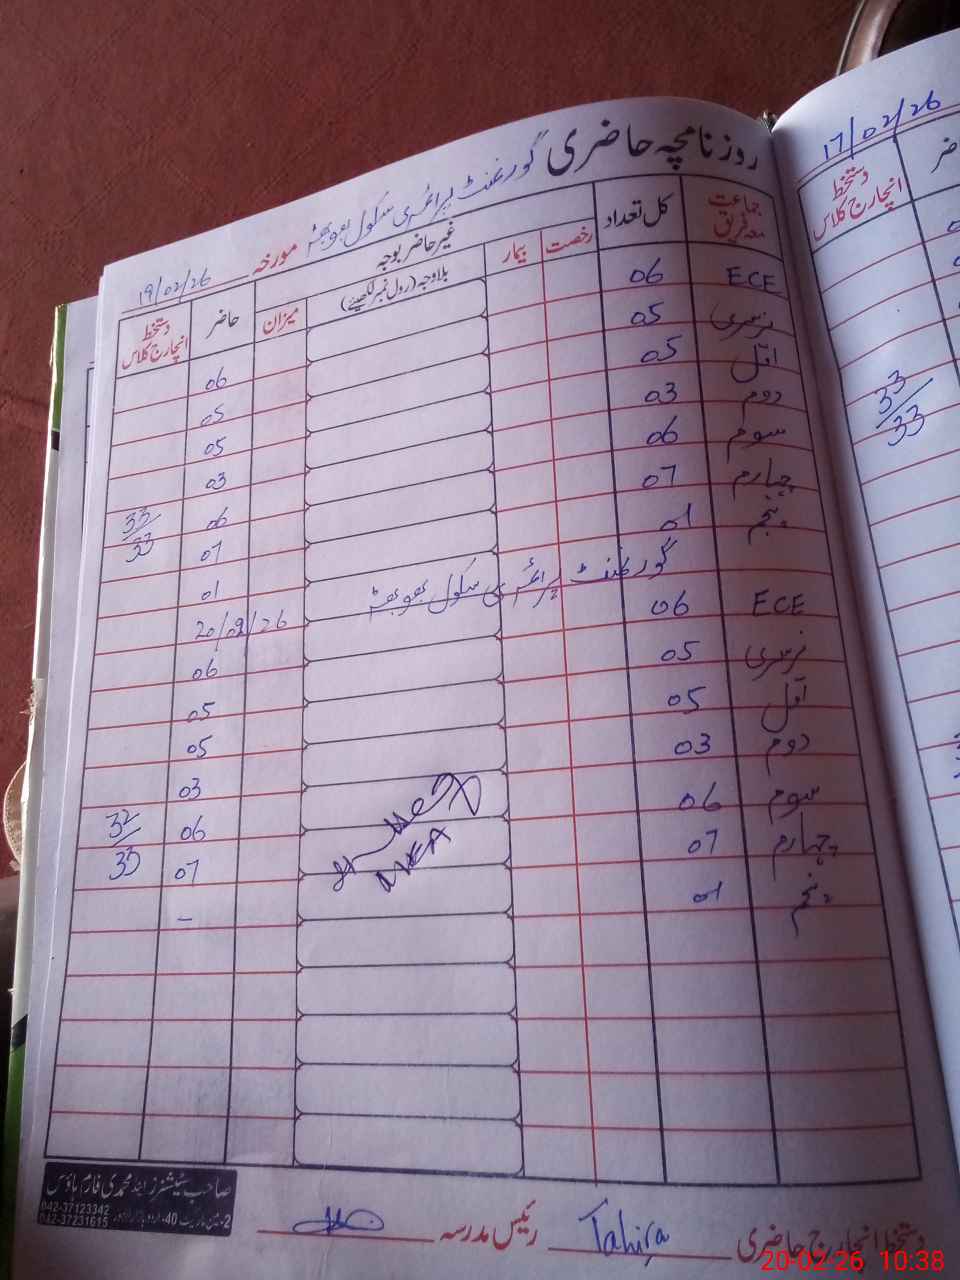 روزنامچہ حاضری گورنمنٹ پرائمری سکول مورخہ 19/02/26
جماعت معہ فریق کل تعداد غیر حاضر بوجہ حاضر دستخط انچارج کلاس
رخصت بیمار بلاوجہ (رول نمبر لکھیئے) میزان
ECE 06 06
نرسری 05 05
اول 05 05
دوم 03 03
سوم 06 06 33/33
چہارم 07 07
پنجم 01 01
گورنمنٹ پرائمری سکول 20/02/26
ECE 06 06
نرسری 05 05
اول 05 05
دوم 03 03
سوم 06 06 32/33
چہارم 07 07
پنجم 01 -
MEA
دستخط انچارج حاضری Tahira رئیس مدرسہ
صاحب سٹیشنرز اینڈ محمدی فارم ہاؤس
042-37123342
042-37231615
17/02/26
حاضر
دستخط انچارج کلاس
33/33
20-02-26 10:38